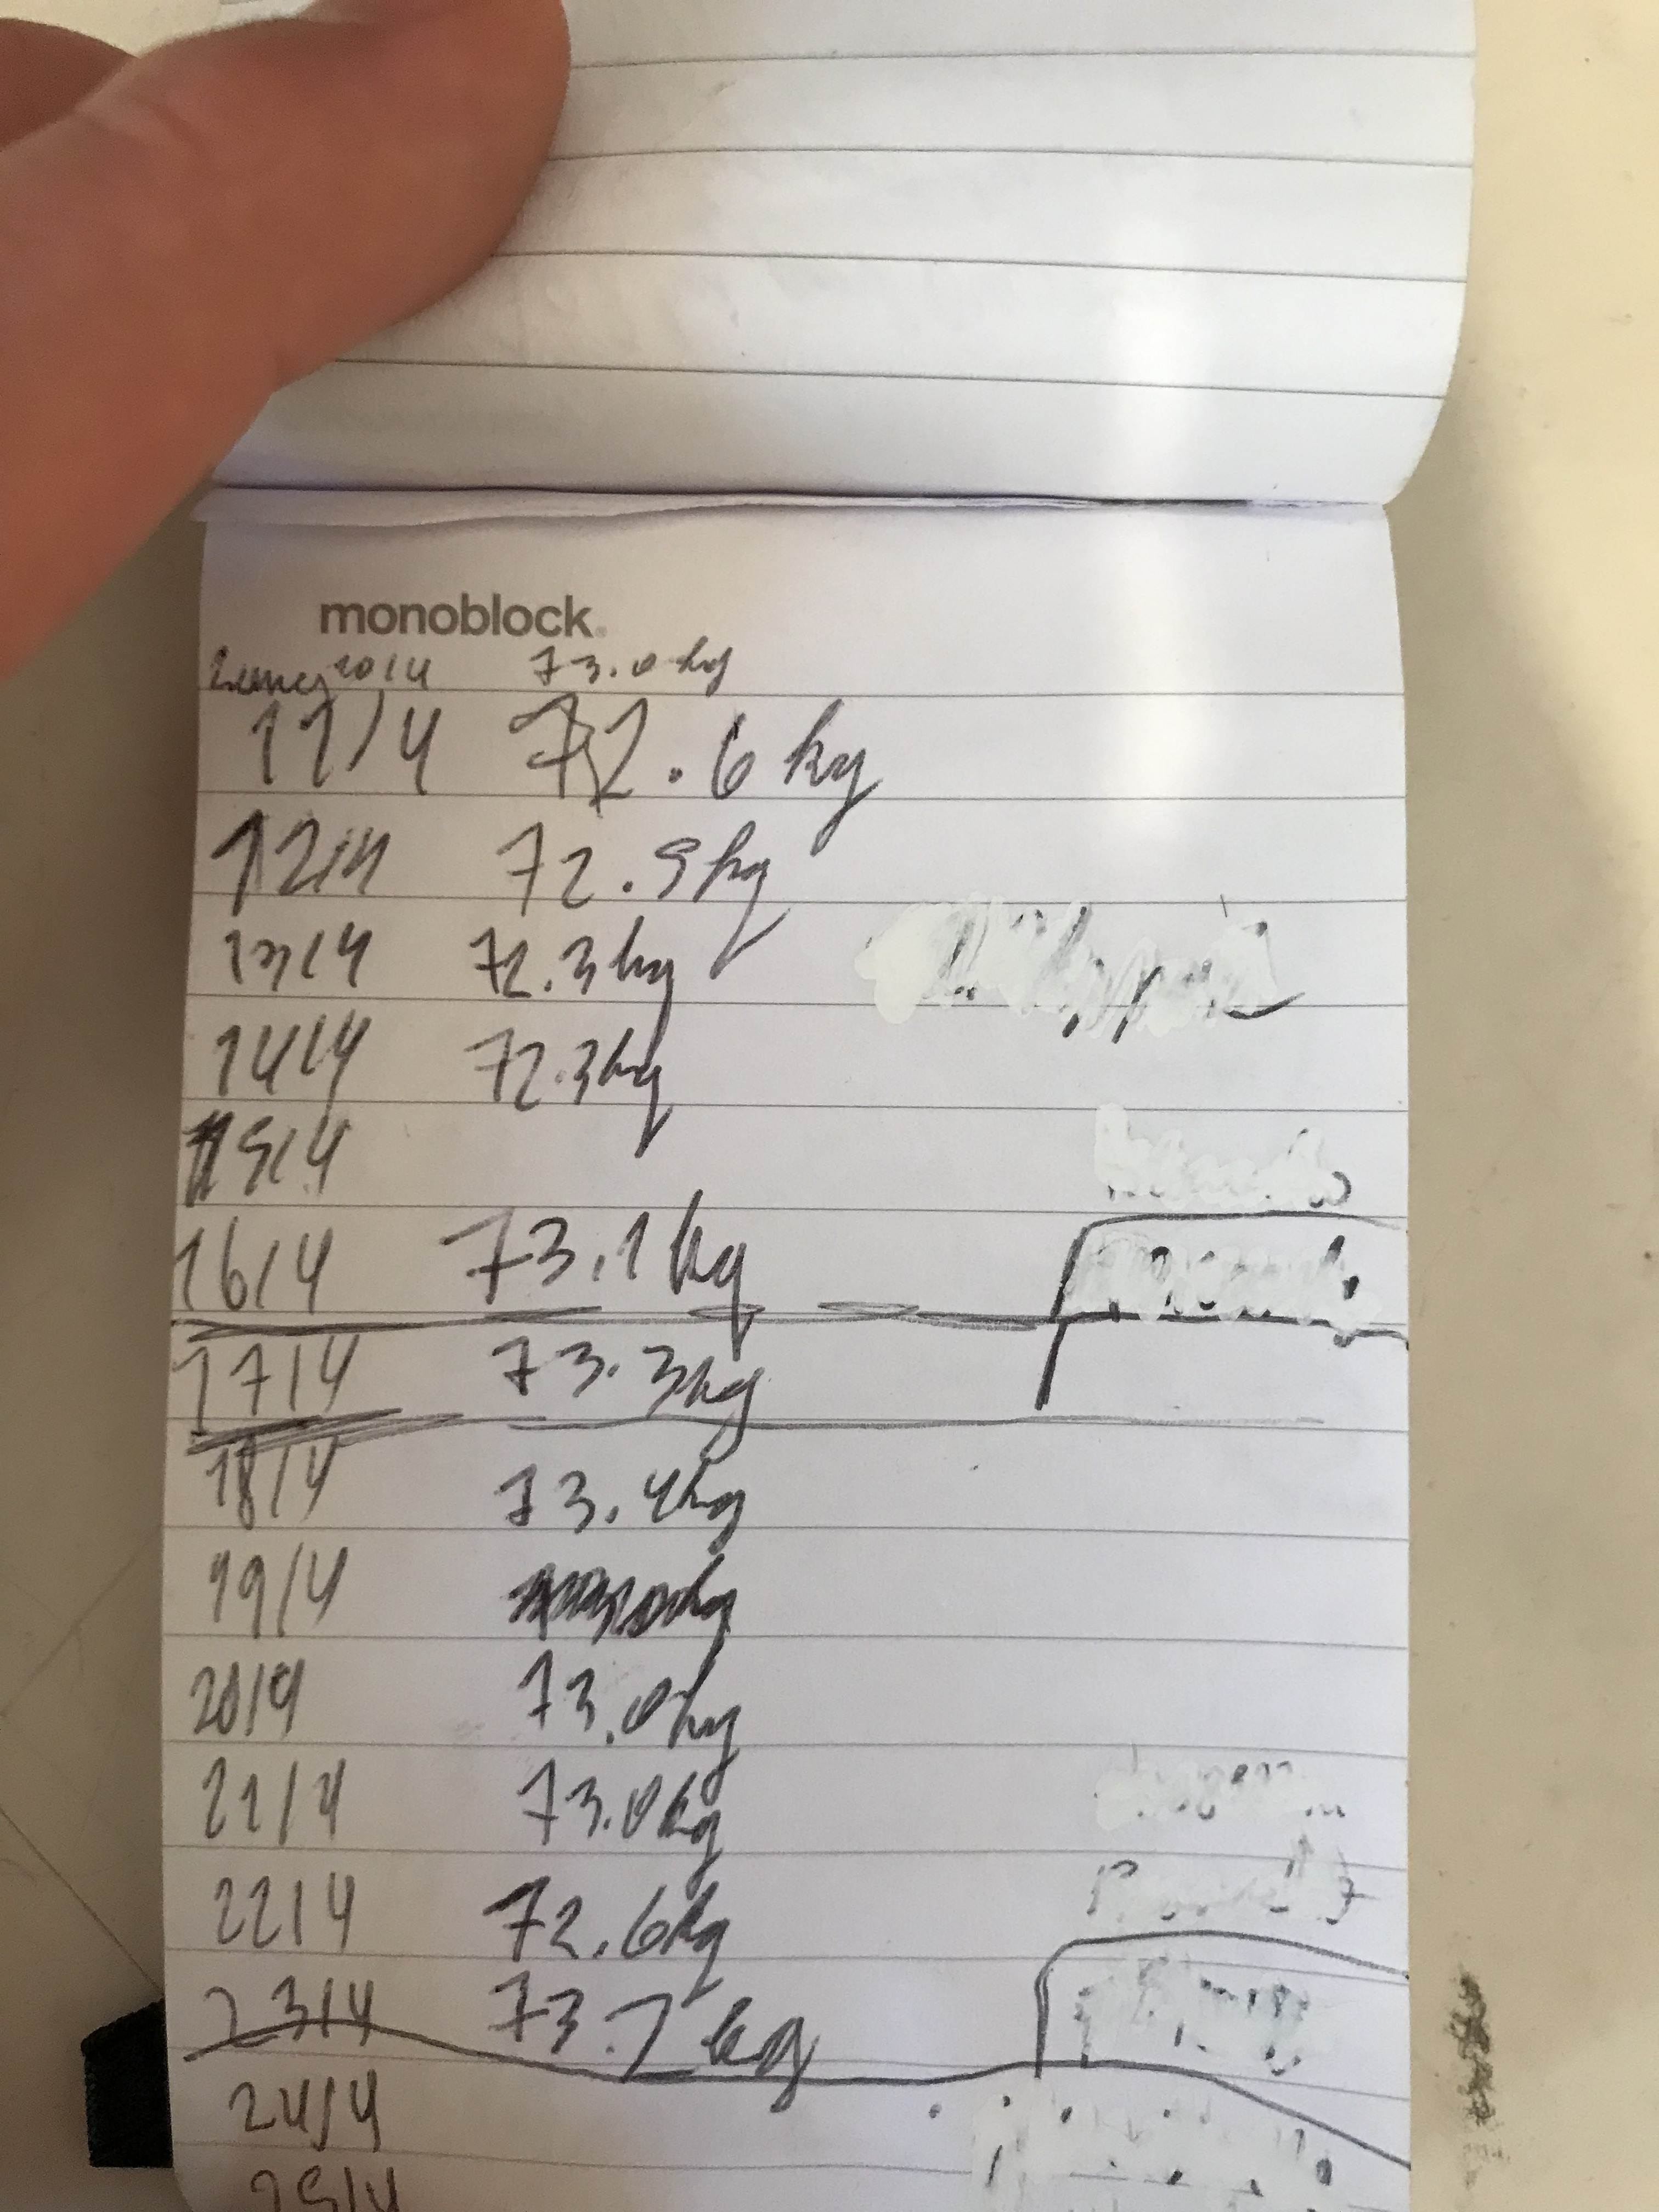 monoblock.
Lunes 10/4 73.0 kg
11/4 72.6 kg
12/4 72.9 kg
13/4 72.3 kg
14/4 72.3 kg
15/4
16/4 73.1 kg
17/4 73.3 kg
18/4 73.4 kg
19/4
20/4 73.0 kg
21/4 73.0 kg
22/4 72.6 kg
23/4 73.2 kg
24/4
25/4